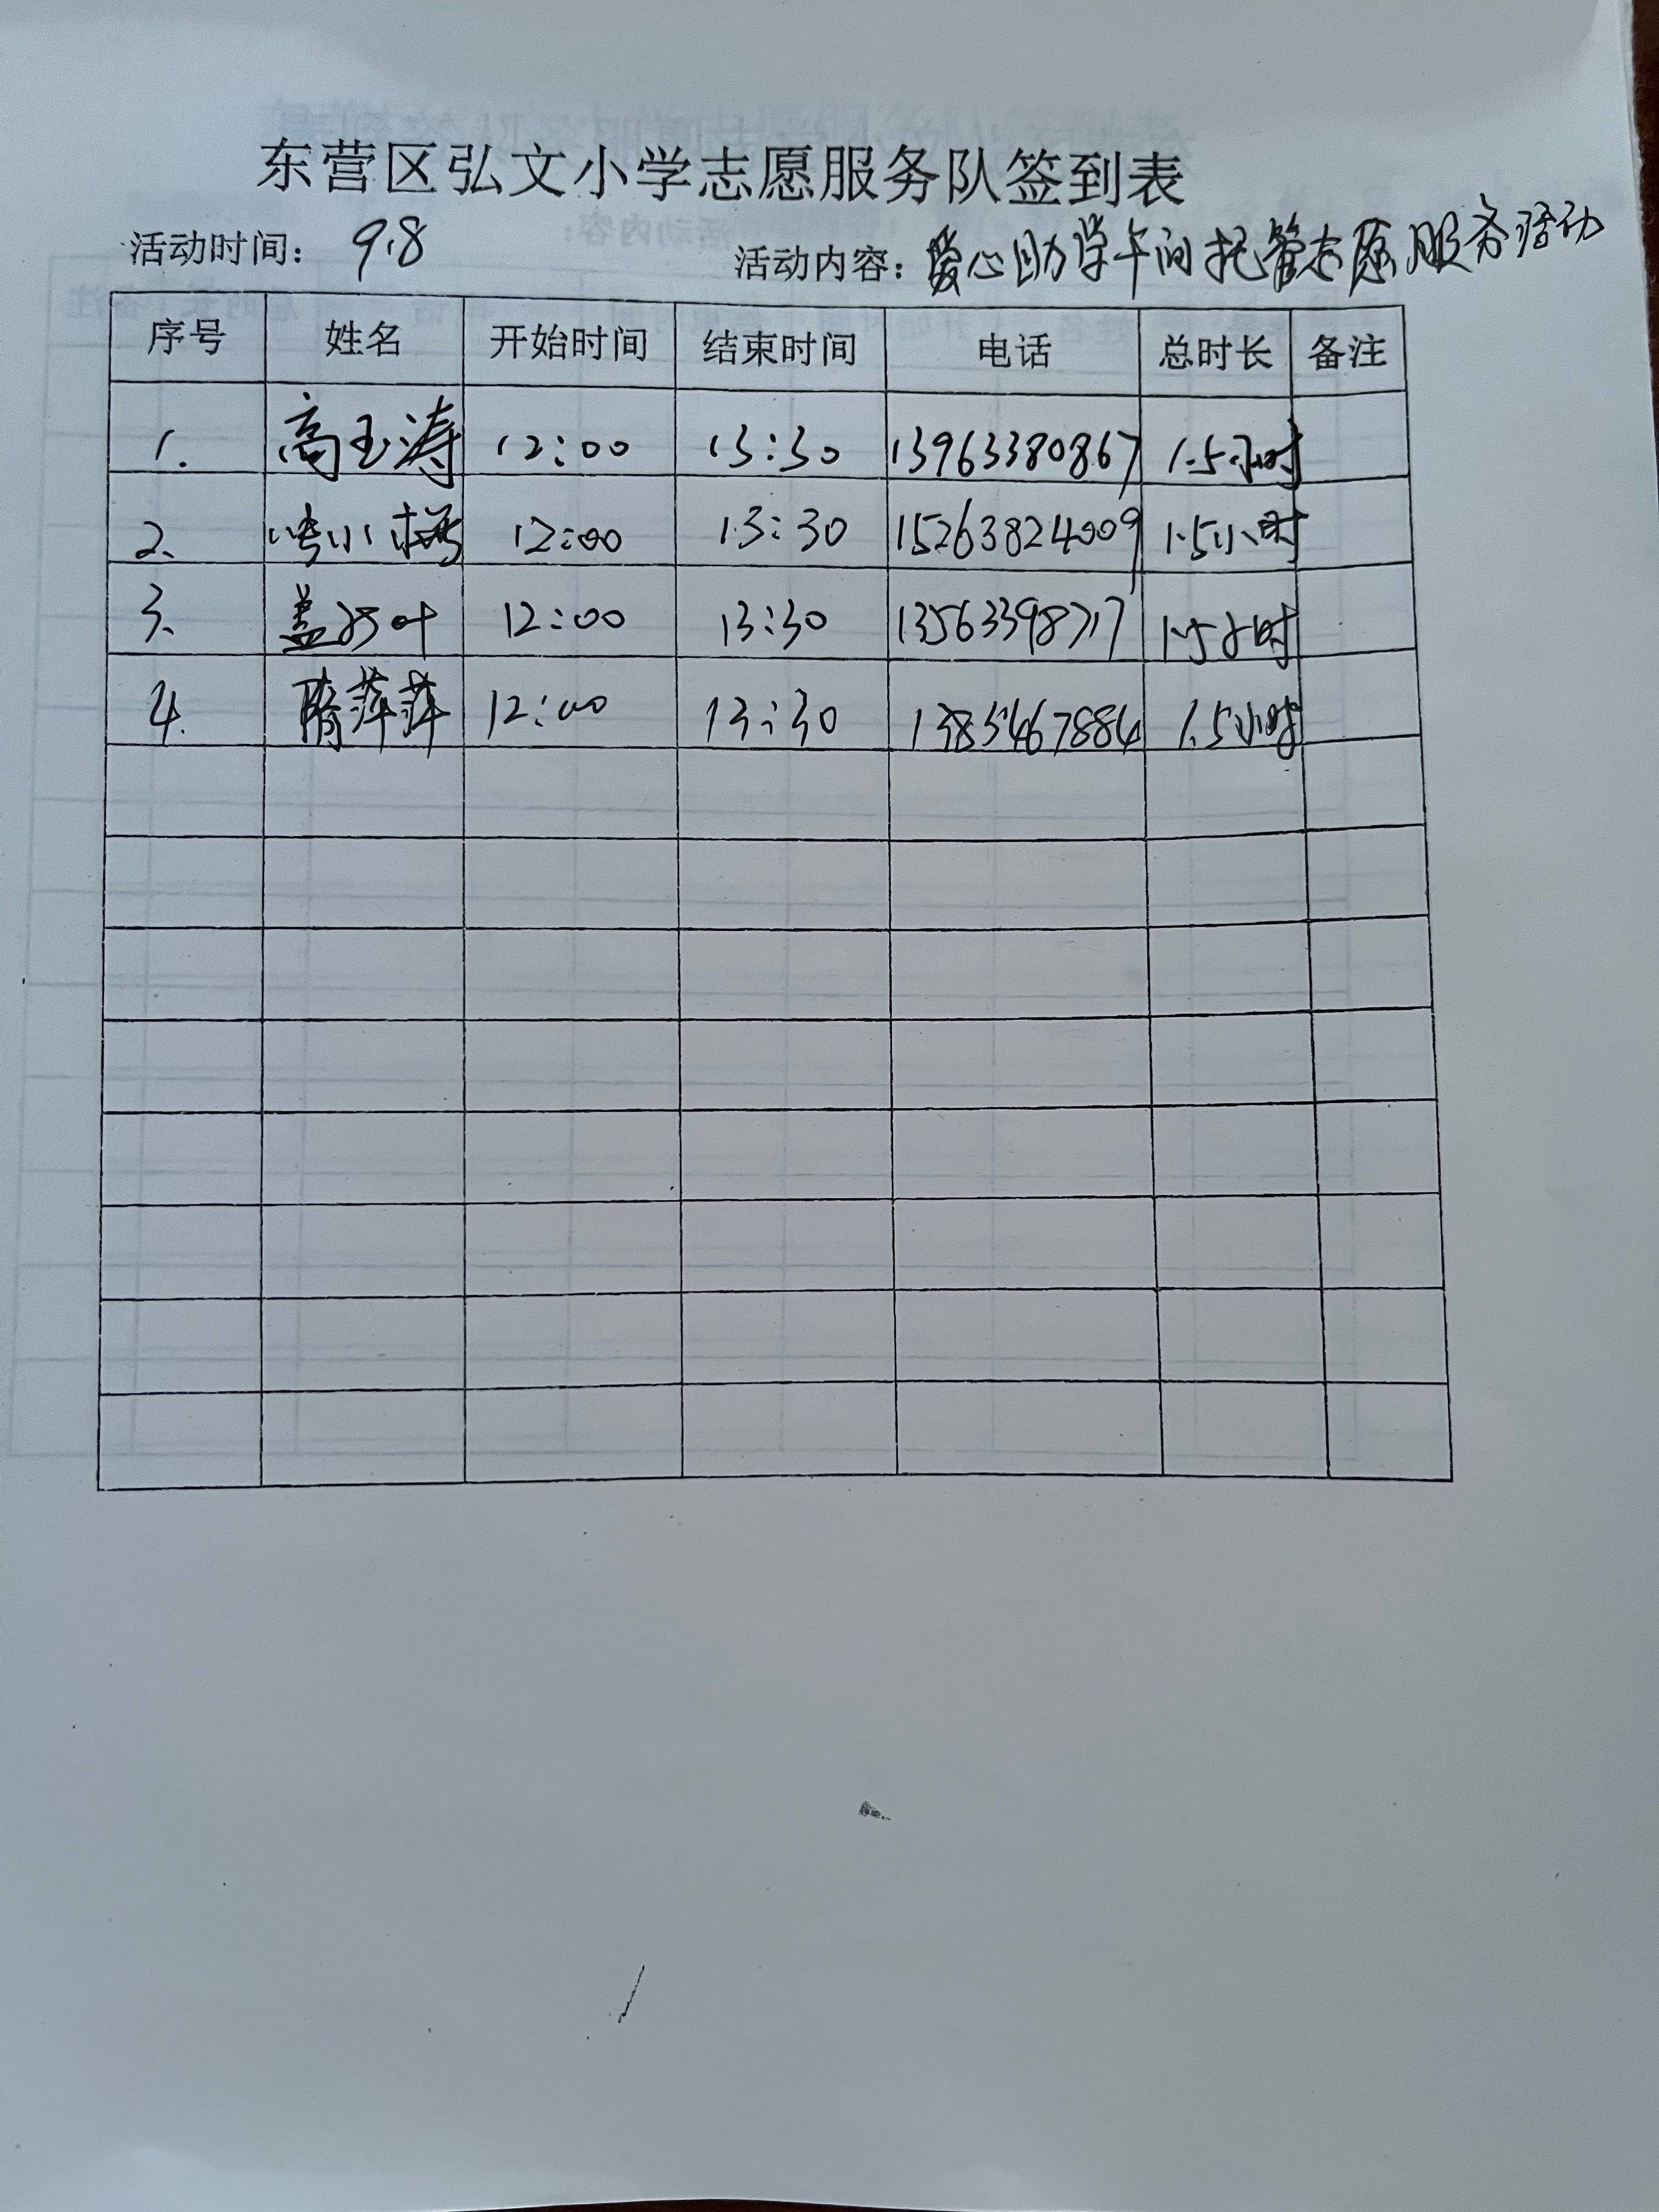 东营区弘文小学志愿服务队签到表
活动时间： 9.8 活动内容：爱心助学午间托管志愿服务活动
序号 姓名 开始时间 结束时间 电话 总时长 备注
1. 高玉涛 12:00 13:30 13963380867 1.5小时
2、 小梅 12:00 13:30 15263824009 1.5小时
3、 盖 叶 12:00 13:30 13563398717 1.5小时
4. 隋萍萍 12:00 13:30 1385467884 1.5小时